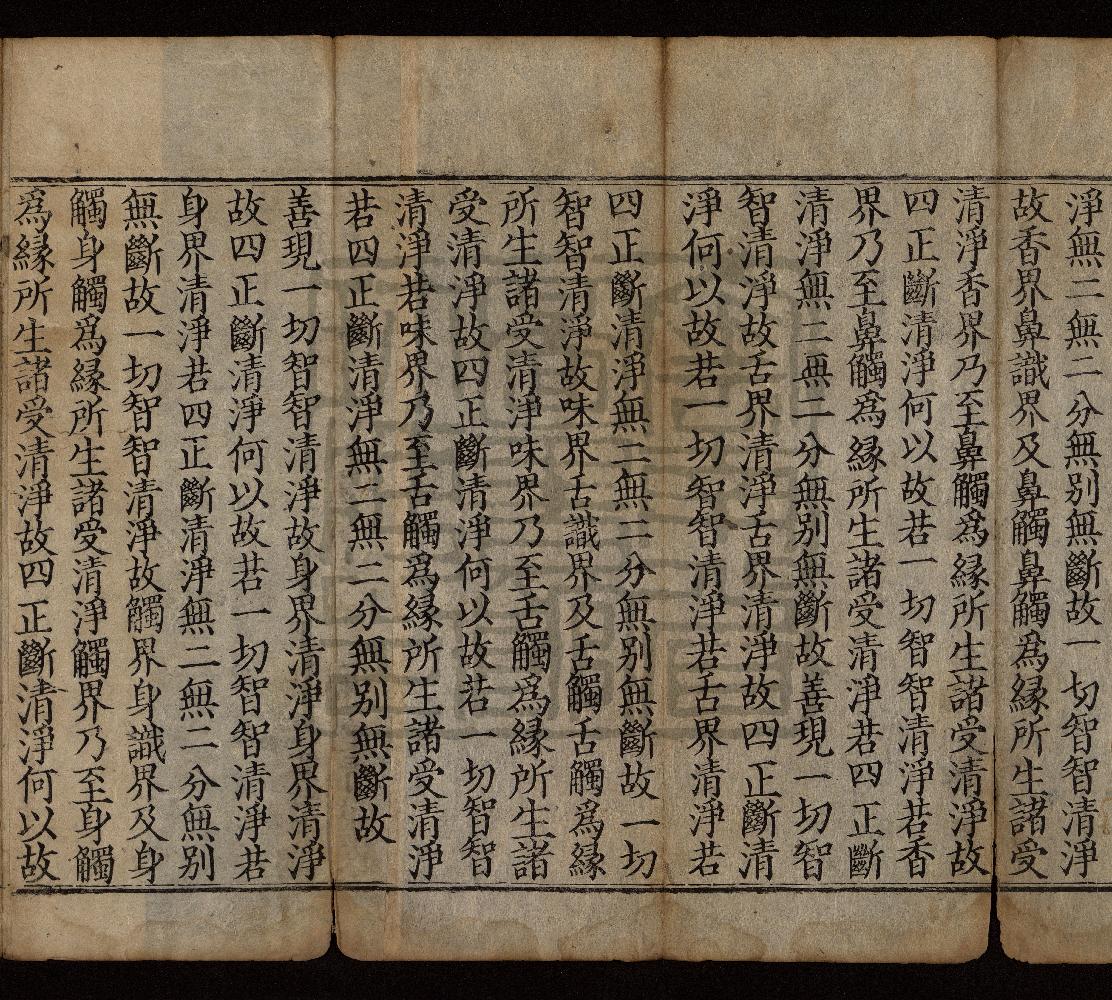 淨無二無二分無别無斷故一切智智清淨
故香界鼻識界及鼻觸鼻觸爲縁所生諸受
清淨香界乃至鼻觸爲縁所生諸受清淨故
四正斷清淨何以故若一切智智清淨若香
界乃至鼻觸爲縁所生諸受清淨若四正斷
清淨無二無二分無别無斷故善現一切智
智清淨故舌界清淨舌界清淨故四正斷清
淨何以故若一切智智清淨若舌界清淨若
四正斷清淨無二無二分無别無斷故一切
智智清淨故味界舌識界及舌觸舌觸爲縁
所生諸受清淨味界乃至舌觸爲縁所生諸
受清淨故四正斷清淨何以故若一切智智
清淨若味界乃至舌觸爲縁所生諸受清淨
若四正斷清淨無二無二分無别無斷故
善現一切智智清淨故身界清淨身界清淨
故四正斷清淨何以故若一切智智清淨若
身界清淨若四正斷清淨無二無二分無别
無斷故一切智智清淨故觸界身識界及身
觸身觸爲縁所生諸受清淨觸界乃至身觸
爲縁所生諸受清淨故四正斷清淨何以故